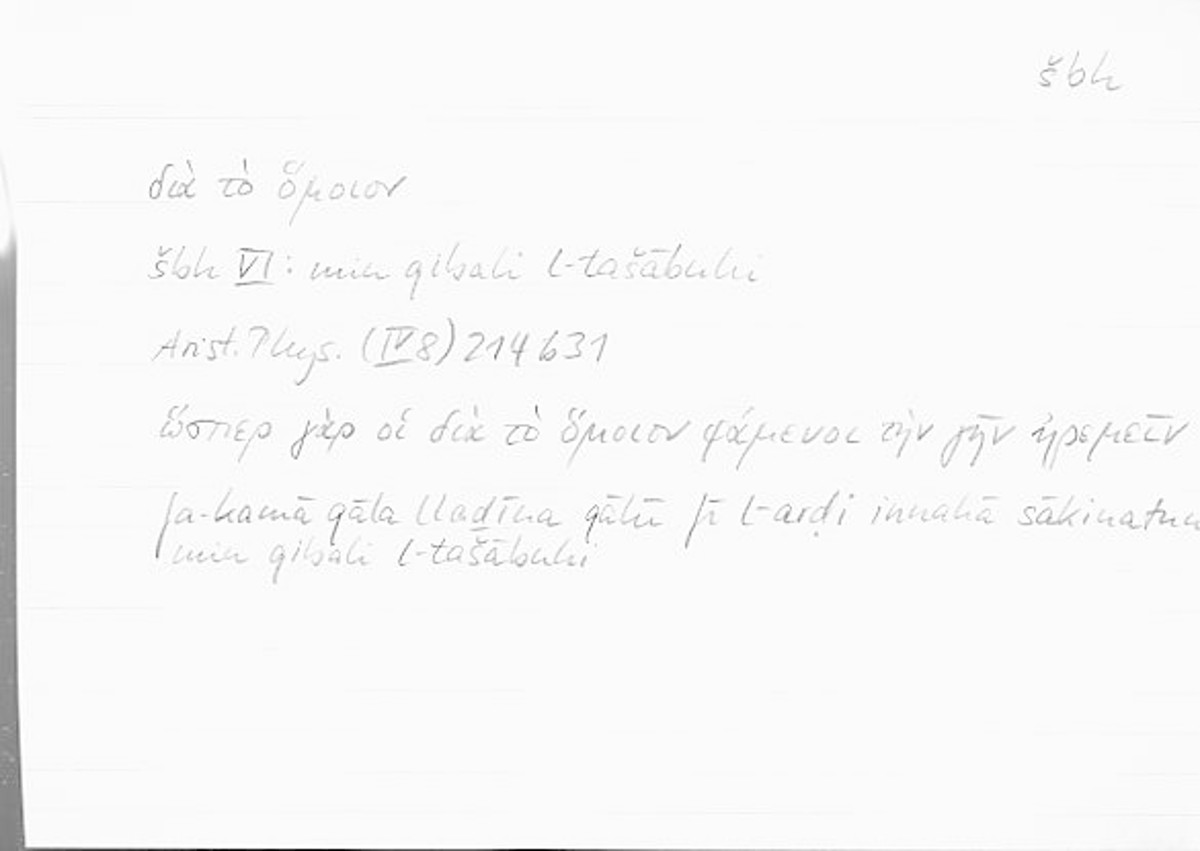 šbh
διὰ τὸ ὅμοιον
šbh VI: min qibali l-tašābuhi
Arist. Phys. (IV 8) 214b31
ὥσπερ γὰρ οἱ διὰ τὸ ὅμοιον φάμενοι τὴν γῆν ἠρεμεῖν
fa-kamā qāla llaḏīna qālū fī l-arḍi innahā sākinatun
min qibali l-tašābuhi